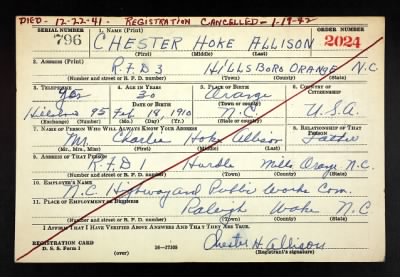 DIED - 12-22-41. - REGISTRATION CANCELLED - 1-19-42
SERIAL NUMBER 1. NAME (Print) ORDER NUMBER
796 CHESTER HOKE ALLISON 2024
(First) (Middle) (Last)
2. ADDRESS (Print)
R.F.D 3 HILLSBORO ORANGE N.C
(Number and street or R. F. D. number) (Town) (County) (State)
3. TELEPHONE 4. AGE IN YEARS 5. PLACE OF BIRTH 6. COUNTRY OF CITIZENSHIP
yes 30 Orange
(Town or county)
DATE OF BIRTH
95 Feb 19 1910 N.C. U.S.A.
(Exchange) (Number) (Mo.) (Day) (Yr.) (State or country)
7. NAME OF PERSON WHO WILL ALWAYS KNOW YOUR ADDRESS 8. RELATIONSHIP OF THAT PERSON
Mr Charlie Hoke Allison Father
(Mr., Mrs., Miss) (First) (Middle) (Last)
9. ADDRESS OF THAT PERSON
R.F.D 1 Hurdle Mills Orange N.C.
(Number and street or R. F. D. number) (Town) (County) (State)
10. EMPLOYER'S NAME
N.C. Highway and Public Works Com.
11. PLACE OF EMPLOYMENT OR BUSINESS
Raleigh Wake N.C
(Number and street or R. F. D. number) (Town) (County) (State)
I AFFIRM THAT I HAVE VERIFIED ABOVE ANSWERS AND THAT THEY ARE TRUE.
REGISTRATION CARD
D. S. S. Form 1 16-17105 Chester H. Allison
(Registrant's signature)